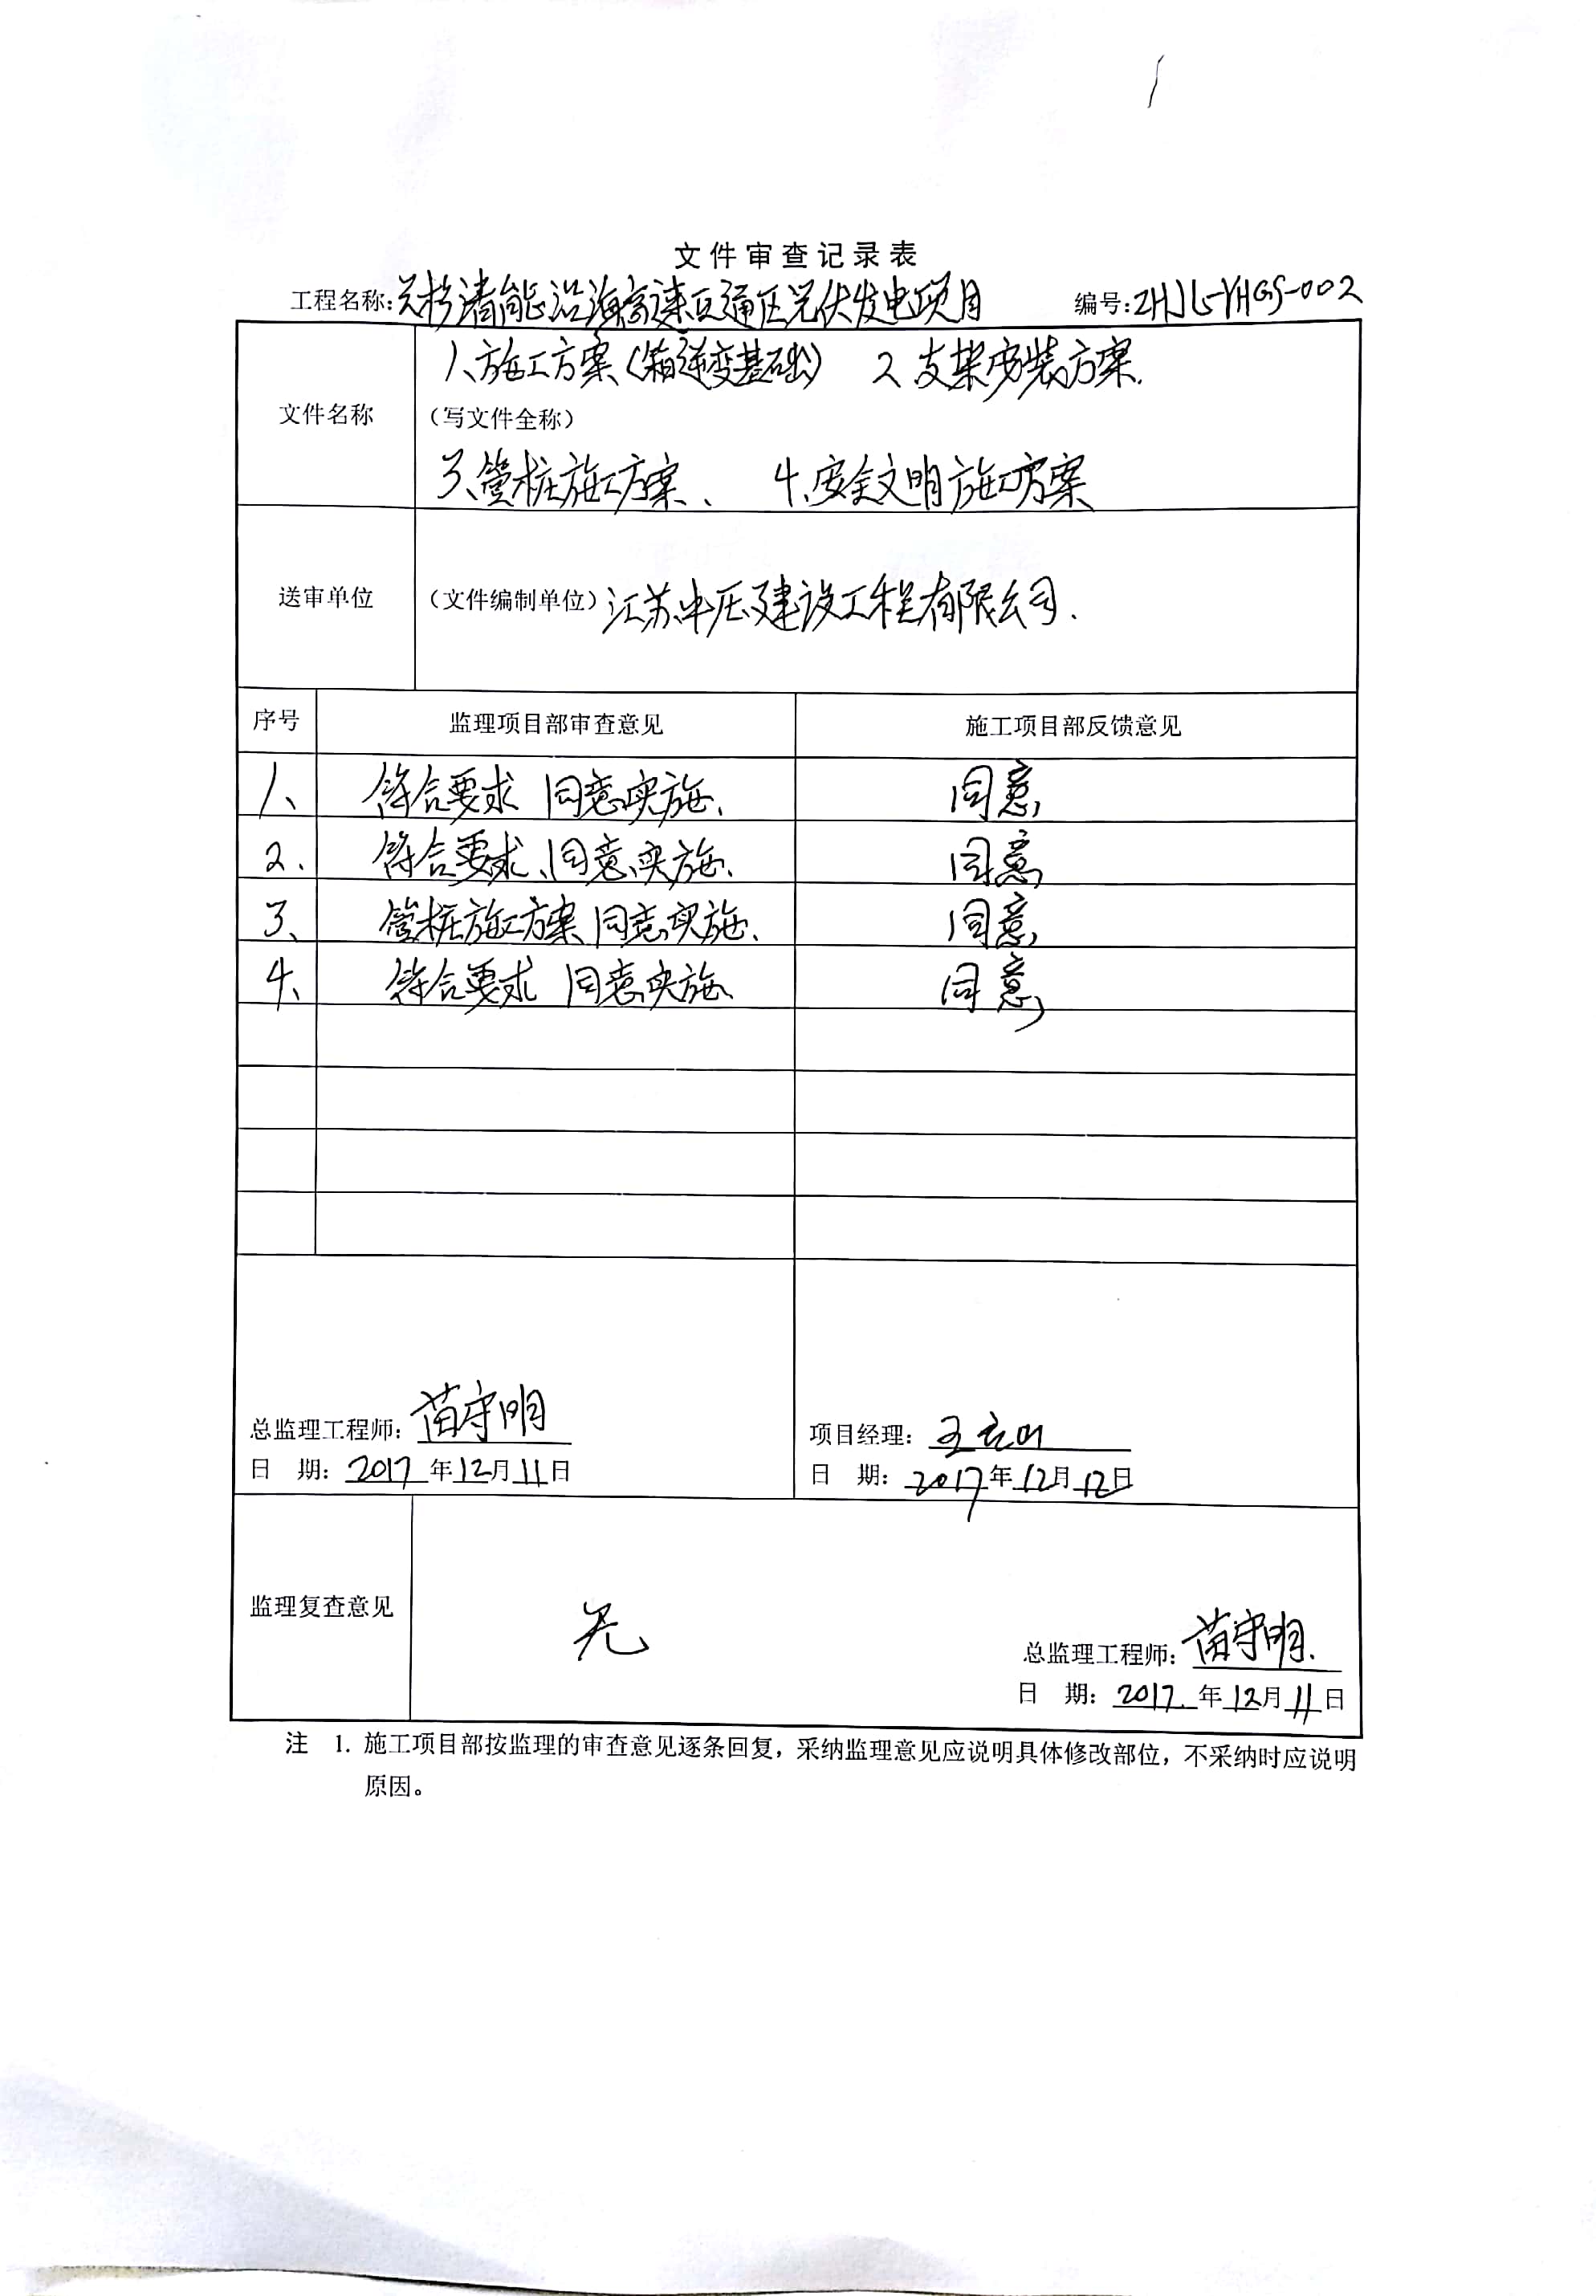 文件审查记录表
工程名称:关杉清能沿海高速互通区光伏发电项目 编号:ZHJL-YHGS-002
1、施工方案(箱逆变基础) 2、支架安装方案.
文件名称 (写文件全称)
3、管桩施工方案、 4、安全文明施工方案
送审单位 (文件编制单位) 江苏中压建设工程有限公司.
序号 监理项目部审查意见 施工项目部反馈意见
1、 符合要求 同意实施、 同意
2. 符合要求、同意实施、 同意
3、 管桩施工方案 同意实施、 同意
4、 符合要求 同意实施、 同意
总监理工程师: 苗守明 项目经理: 王
日 期: 2017年12月11日 日 期: 2017年12月12日
监理复查意见 无
总监理工程师: 苗守明.
日 期: 2017.年12月11日
注 1. 施工项目部按监理的审查意见逐条回复,采纳监理意见应说明具体修改部位,不采纳时应说明
原因。